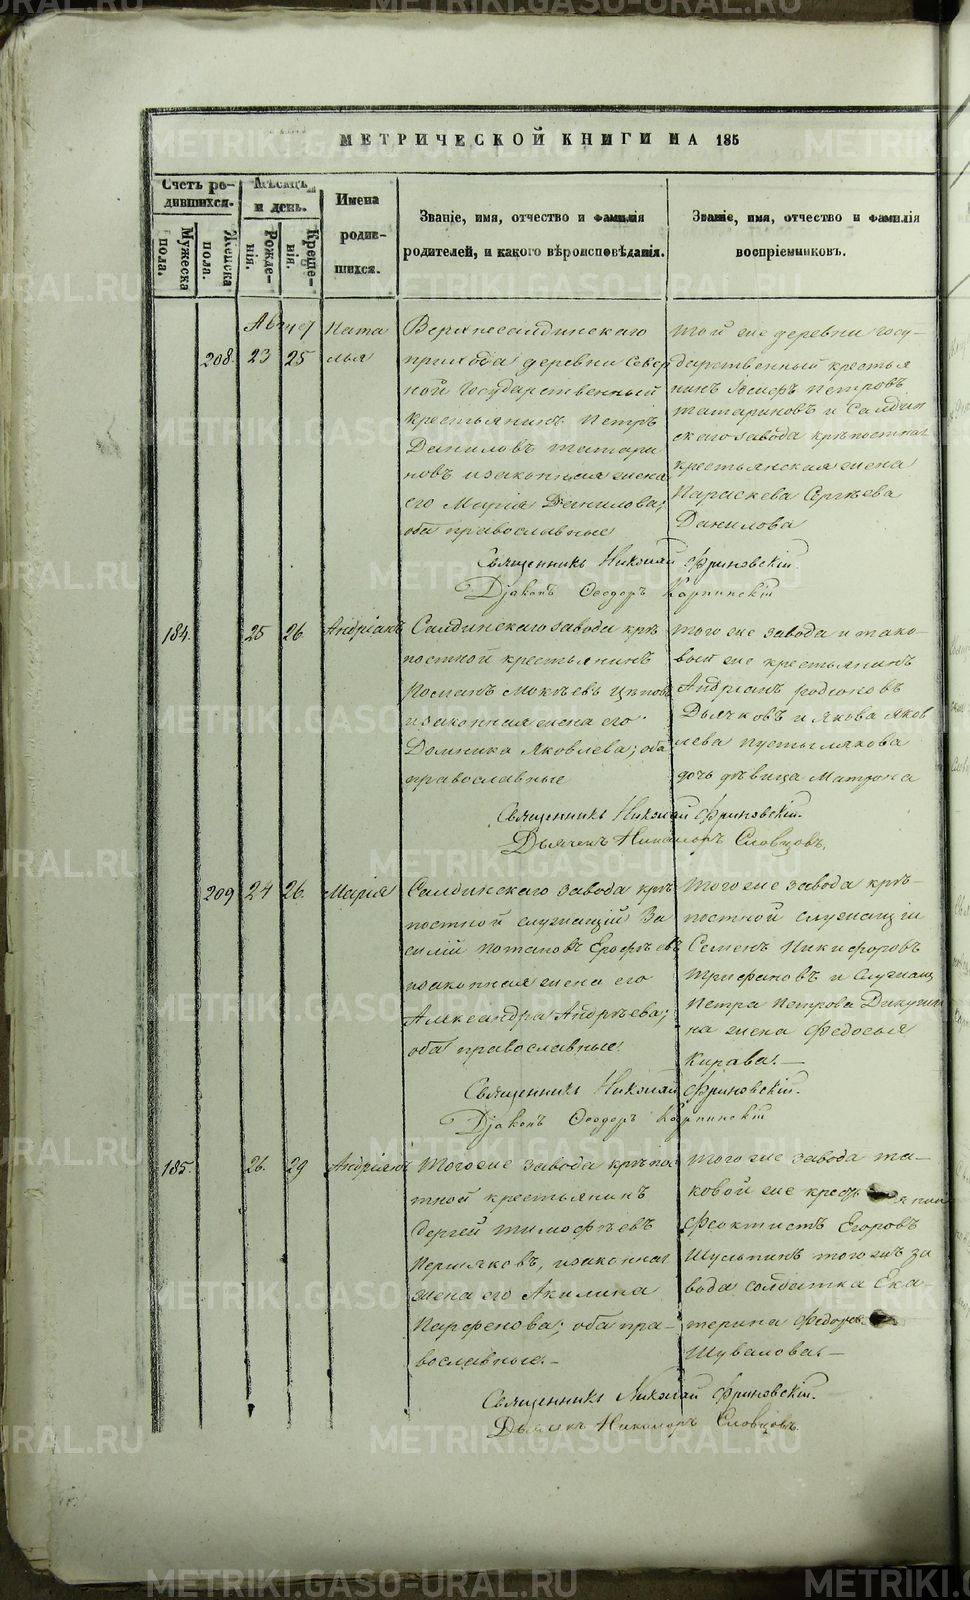 МЕТРИЧЕСКОЙ КНИГИ НА 185
Счетъ ро-
дившихся.
Мужеска
пола.
Женска
пола.
Мѣсяцъ
и день.
Рожде-
нія.
Креще-
нія.
Имена
родив-
шихся.
Званіе, имя, отчество и фамилія
родителей, и какого вѣроисповѣданія.
Званіе, имя, отчество и фамилія
воспріемниковъ.
Август
208 23 25
Ната
лья
Верхнесалдинскаго
прихода деревни Север
ной Государственный
крестьянинъ Петръ
Даниловъ Татари
новъ и законная жена
его Марія Данилова;
оба православные
Той же деревни Госу-
дарственный крестья
нинъ Іосифъ Петровъ
Татариновъ и Салдин
скаго завода крѣпостная
крестьянская жена
Параскева Сергѣева
Данилова
Священникъ Николай Фриновскій.
Діаконъ Ѳеодоръ Карпинскій
184. 25 26 Андріанъ
Салдинскаго завода крѣ
постной крестьянинъ
Романъ Мокѣевъ
и законная жена его
Домника Яковлева; оба
православные
Того же завода и тако-
вый же крестьянинъ
Андріанъ Родіоновъ
Дьячковъ и Якова Яков
лева Пустылякова
дочь дѣвица Матрона
Священникъ Николай Фриновскій.
Дьячекъ Никаноръ Словцовъ.
209 24 26. Марія
Салдинскаго завода крѣ
постной служащій Ва
силій Потаповъ Ерофѣевъ
и законная жена его
Александра Андрѣева;
оба православные.
Того же завода крѣ-
постной служащій
Семенъ Никифоровъ
Трифановъ и служащ
Петра Петрова
на жена Федосья
Кирова.—
Священникъ Николай Фриновскій.
Діаконъ Ѳеодоръ Карпинскій
185. 26. 29 Андріанъ
Того же завода крѣпос
тной крестьянинъ
Сергей Тимофѣевъ
Перняковъ, и законная
жена его Акилина
Парфенова; оба пра-
вославные.—
Того же завода та-
ковой же крест янин
Феоктистъ Егоровъ
Шульпинъ того жъ за
вода солдатка Ека-
терина Федоров.
Шувалова.—
Священникъ Николай Фриновскій.
Дьячекъ Никаноръ Словцовъ.
METRIKI.GASO-URAL.RU